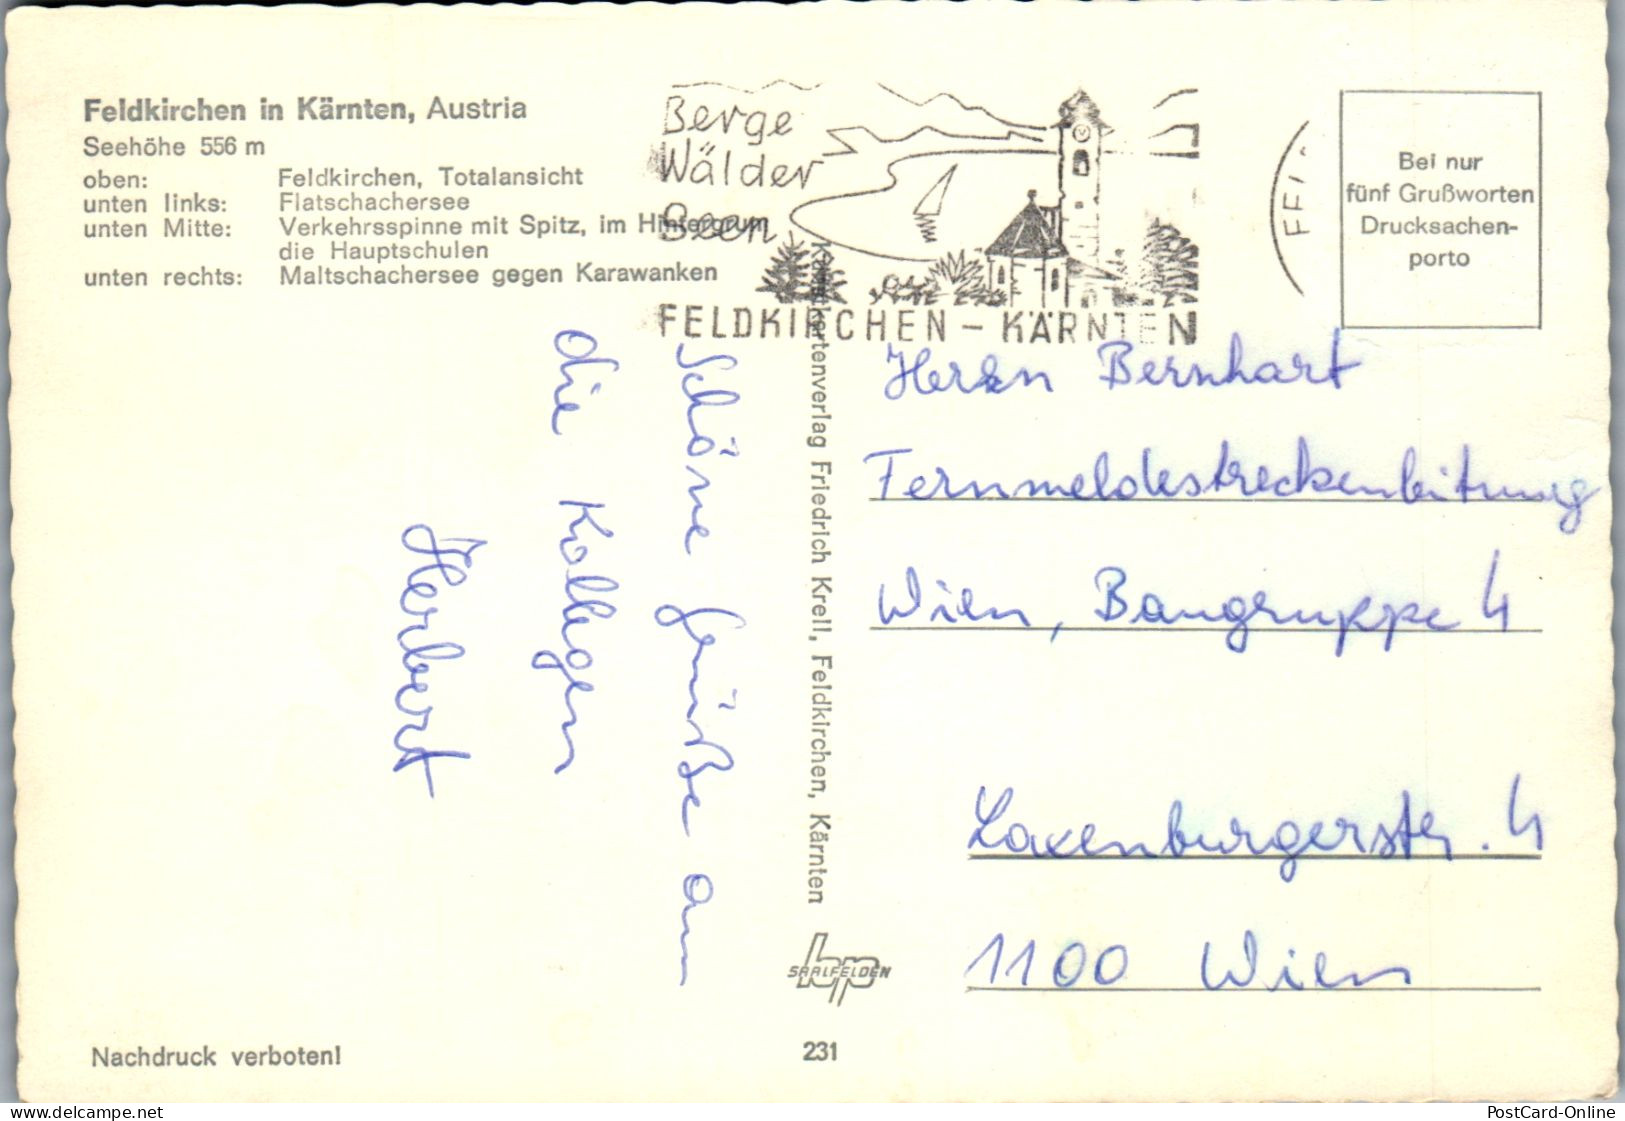 Feldkirchen in Kärnten, Austria
Seehöhe 556 m
oben: Feldkirchen, Totalansicht
unten links: Flatschachersee
unten Mitte: Verkehrsspinne mit Spitz, im Hintergrund
die Hauptschulen
unten rechts: Maltschachersee gegen Karawanken
Berge
Wälder
Seen
FELDKIRCHEN - KÄRNTEN
Bei nur
fünf Grußworten
Drucksachen-
porto
Schöne Grüße an
die Kollegen
Herbert
Kunstkartenverlag Friedrich Krell, Feldkirchen, Kärnten
Herrn Bernhart
Fernmeldestreckenleitung
Wien, Baugruppe 4
Laxenburgerstr. 4
1100 Wien
SAALFELDEN
231
Nachdruck verboten!
delcampe.net
PostCard-Online